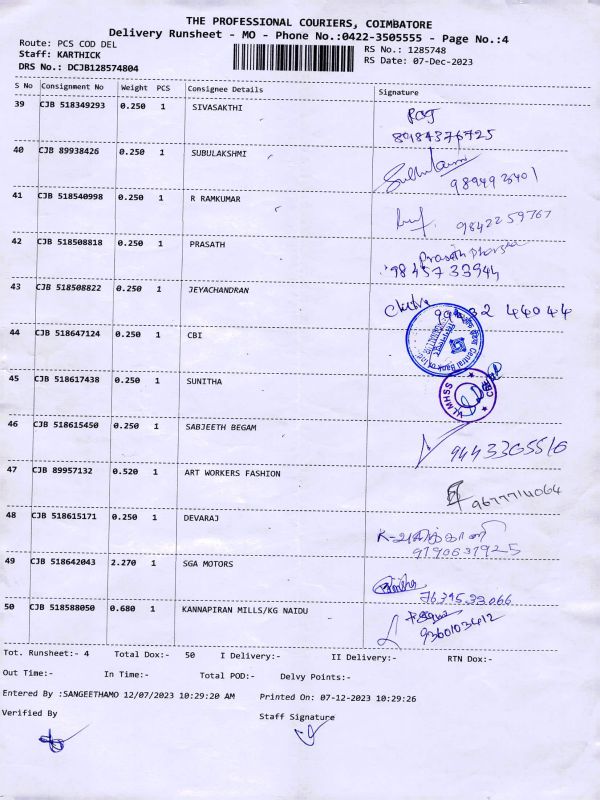 THE PROFESSIONAL COURIERS, COIMBATORE
Delivery Runsheet - MO - Phone No.:0422-3505555 - Page No.:4
Route: PCS COD DEL RS No.: 1285748
Staff: KARTHICK RS Date: 07-Dec-2023
DRS No.: DCJB128574804
S No Consignment No Weight PCS Consignee Details Signature
39 CJB 518349293 0.250 1 SIVASAKTHI
89184376725
40 CJB 89938426 0.250 1 SUBULAKSHMI
989493401
41 CJB 518540998 0.250 1 R RAMKUMAR
9842259767
42 CJB 518508818 0.250 1 PRASATH Prasath
9845733944
43 CJB 518508822 0.250 1 JEYACHANDRAN Chitra 44044
44 CJB 518647124 0.250 1 CBI
Central Bank of
45 CJB 518617438 0.250 1 SUNITHA
VLMHSS CBE
46 CJB 518615450 0.250 1 SABJEETH BEGAM
9443305510
47 CJB 89957132 0.520 1 ART WORKERS FASHION
9677714064
48 CJB 518615171 0.250 1 DEVARAJ
9790637925
49 CJB 518642043 2.270 1 SGA MOTORS
7639533066
50 CJB 518588050 0.680 1 KANNAPIRAN MILLS/KG NAIDU
9360103412
Tot. Runsheet:- 4 Total Dox:- 50 I Delivery:- II Delivery:- RTN Dox:-
Out Time:- In Time:- Total POD:- Delvy Points:-
Entered By :SANGEETHAMO 12/07/2023 10:29:20 AM Printed On: 07-12-2023 10:29:26
Verified By Staff Signature